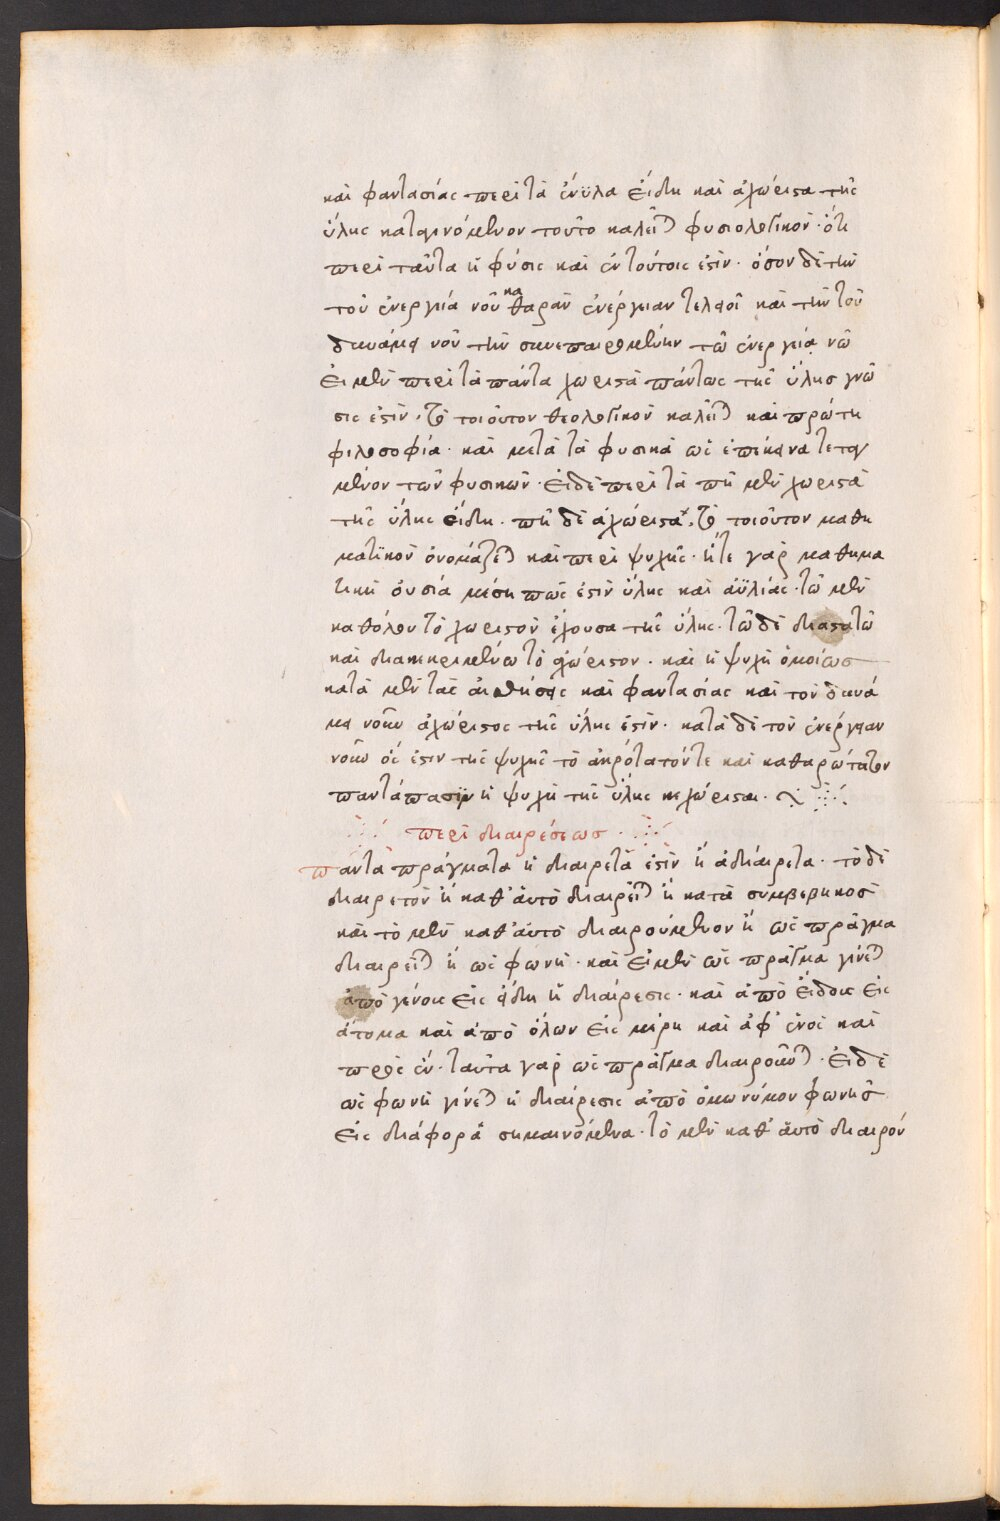 καὶ φαντασίας περὶ τὰ ἔνϋλα εἴδη καὶ ἀχώριστα τῆς
ὕλης καταγινόμενον τοῦτο καλεῖται φυσιολογικὸν· ὅτι
περὶ ταῦτα ἡ φύσις καὶ ἐν τούτοις ἐστὶν· ὅσον δὲ τὴν
τοῦ ἐνεργεία νοῦ καθαρὰν ἐνέργειαν τελεῖ καὶ τὴν τοῦ
δυνάμει νοῦ τὴν συνεπαιρομένην τῶ ἐνεργεία νῶ
εἰ μὲν περὶ τὰ πάντα χωριστὰ πάντως τῆς ὕλης γνῶ
σις ἐστὶν, τὸ τοιοῦτον θεολογικὸν καλεῖται καὶ πρώτη
φιλοσοφία· καὶ μετὰ τὰ φυσικὰ ὡς ἐπέκεινα τεταγ
μένον τῶν φυσικῶν· εἰ δὲ περὶ τὰ πῆ μὲν χωριστὰ
τῆς ὕλης εἴδη· πῆ δὲ ἀχώριστα, τὸ τοιοῦτον μαθη
ματικὸν ὀνομάζεται καὶ περὶ ψυχῆς· ἥτε γὰρ μαθημα
τικὴ οὐσία μέση πως ἐστὶν ὕλης καὶ ἀϋλίας· τῶ μὲν
καθόλου τὸ χωριστὸν ἔχουσα τῆς ὕλης· τῶ δὲ διαστατῶ
καὶ διακεκριμένω τὸ ἀχώριστον· καὶ ἡ ψυχὴ ὁμοίως
κατὰ μὲν τὰς αἰσθήσεις καὶ φαντασίας καὶ τὸν δυνά
μει νοῦν ἀχώριστος τῆς ὕλης ἐστὶν· κατὰ δὲ τὸν ἐνέργειαν
νοῦν ὅς ἐστιν τῆς ψυχῆς τὸ ἀκρότατόν τε καὶ καθαρώτατον
παντάπασιν ἡ ψυχὴ τῆς ὕλης κεχώρισται·
περὶ διαιρέσεως·
παντα πράγματα ἢ διαιρετὰ ἐστὶν ἢ ἀδιαίρετα· τὸ δὲ
διαιρετὸν ἢ καθ' αὑτὸ διαιρεῖται ἢ κατὰ συμβεβηκὸς
καὶ τὸ μὲν καθ' αὑτὸ διαιρούμενον ἢ ὡς πράγμα
διαιρεῖται ἢ ὡς φωνὴ· καὶ εἰ μὲν ὡς πρᾶγμα γίνεται
ἀπὸ γένους εἰς εἴδη ἡ διαίρεσις· καὶ ἀπὸ εἴδους εἰς
ἄτομα καὶ ἀπὸ ὅλων εἰς μέρη καὶ ἀφ' ἑνὸς καὶ
πρὸς ἕν· ταῦτα γὰρ ὡς πρᾶγμα διαιροῦνται· εἰ δὲ
ὡς φωνὴ γίνεται ἡ διαίρεσις ἀπὸ ὁμωνύμου φωνῆς
εἰς διάφορα σημαινόμενα· τὸ μὲν καθ' αὑτὸ διαιρού